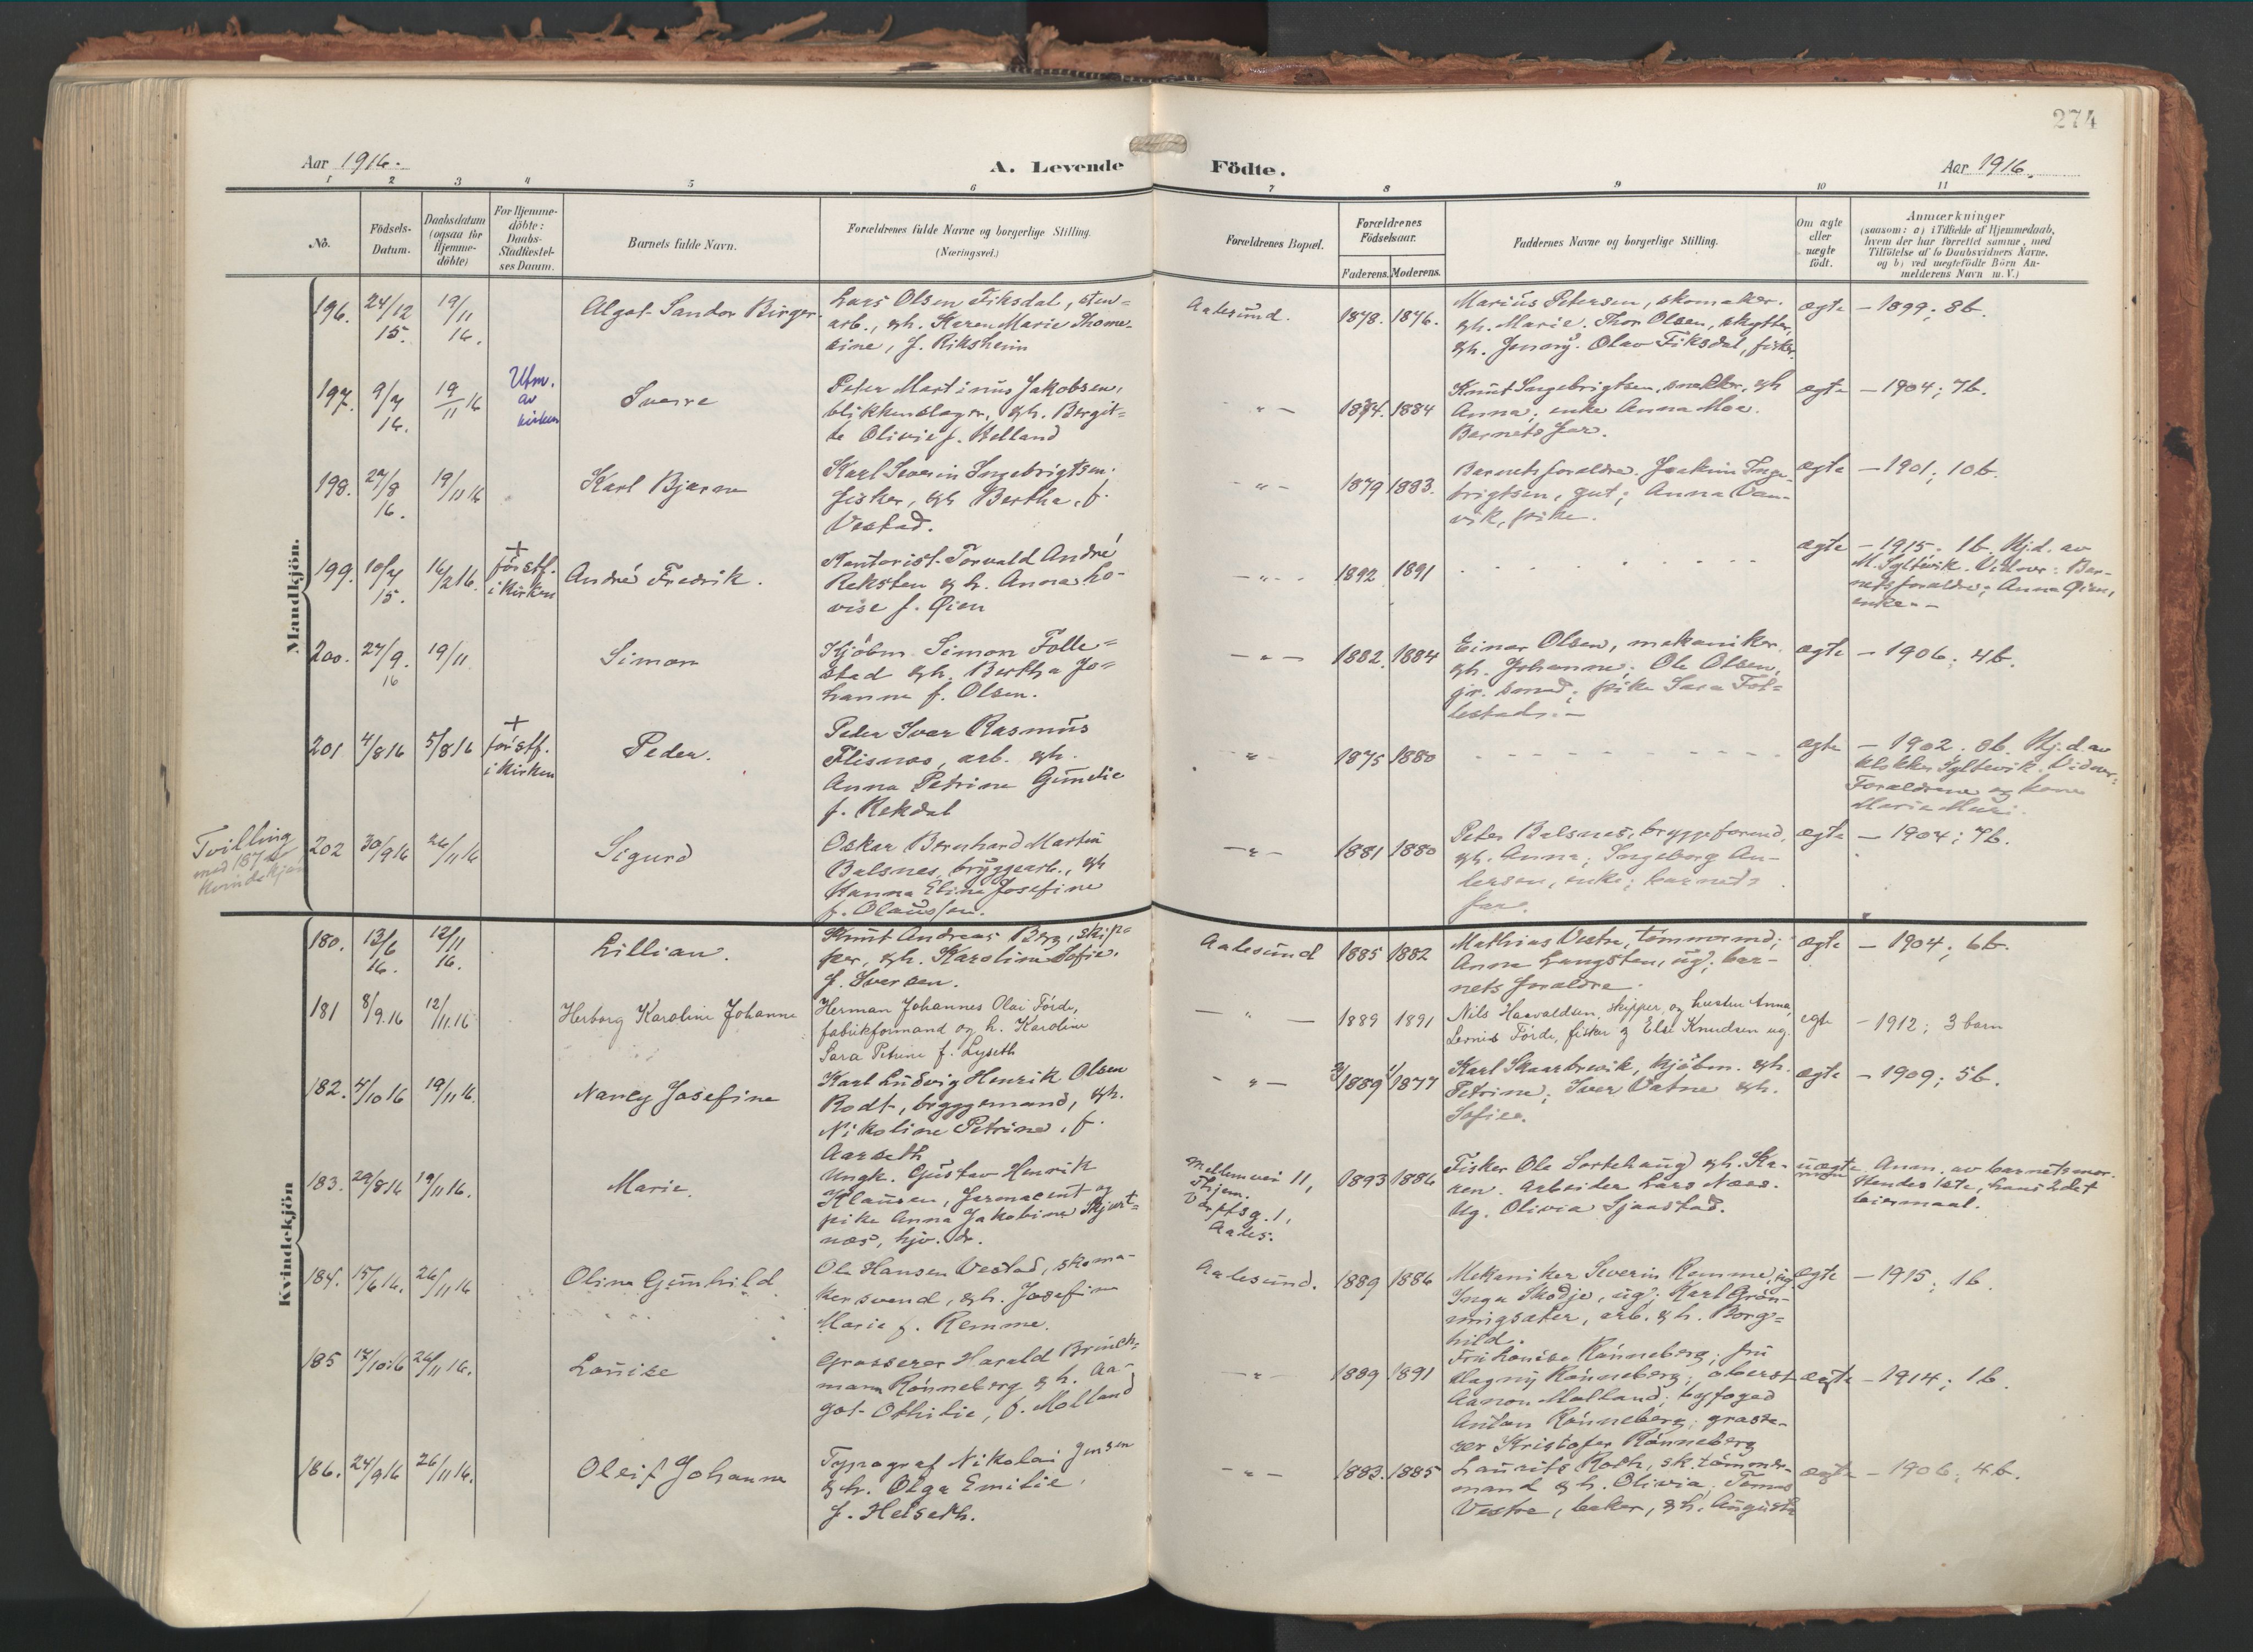 274
Aar 1916.
A. Levende Födte.
Aar 1916.
1 2 3 4 5 6 7 8 9 10 11
No.
Födsels-Datum.
Daabsdatum (ogsaa for Hjemme-döbte)
For Hjemme-döbte: Daabs-Stadfæstel-ses Datum.
Barnets fulde Navn.
Forældrenes fulde Navne og borgerlige Stilling.
(Næringsvei.)
Forældrenes Bopæl.
Forældrenes Födselsaar.
Faderens. Moderens.
Faddernes Navne og borgerlige Stilling.
Om ægte eller uægte födt.
Anmærkninger
(saasom: a) i Tilfælde af Hjemmedaab,
hvem der har forrettet samme, med
Tilföielse af to Daabsvidners Navne,
og b) ved uægtefödte Börn An-
melderens Navn m. V.)
Mandkjön.
196. 24/12 15. 19/11 16. Algot Sandor Birger
Lars Olsen Fiksdal, sten=
arb., & h. Karen Marie Thome-
sine, f. Riksheim
Aalesund. 1878. 1876.
Marius Petersen, skomaker.
& h. Marie. Thor Olsen, skytter,
& h. Jenny. Olav Fiksdal, fisker
ægte - 1899; 8b.
197. 9/7 16. 19/11 16 Utm. av kirken Sverre
Peter Martinus Jakobsen,
blikkenslager, & h. Bergit=
te Olivie f. Helland
- " - 1884. 1884
Knut Ingebrigtsen, snekker, & h
Anna; enke Anna Moe.
Barnets far.
ægte - 1904; 7b.
198. 27/8 16. 19/11 16 Karl Bjarne
Karl Severin Ingebrigtsen,
fisker, & h Bertha, f.
Vestad.
- " - 1879 1883.
Barnets foreldre. Joakim Inge-
brigtsen, gut; Anna Van-
vik, pike.
ægte - 1901; 10b.
199. 10/7 15. 16/2 16. + för stf. i kirken André Fredrik.
Kontorist Torvald André
Reksten & h. Anna Lo-
vise f. Øien
- " - 1892 1891
ægte - 1915. 1b. Hj.d. av
M. Syltevik. Vidner: Bar-
nets foreldre; Anna Øien,
enke. -
200. 27/9 16 19/11 Simon
Kjöbm. Simon Folle=
stad & h. Bertha Jo=
hanne f. Olsen.
- " - 1882. 1884
Einar Olsen, mekaniker.
& h. Johanne; Ole Olsen,
gr. svend; pike Sara Fol=
lestad. -
ægte - 1906; 4b.
201 4/8 16 5/8 16 + för stf. i kirken Peder.
Peder Ivar Rasmus
Flisnes, arb. & h.
Anna Petrine Gundie
f. Rekdal
- " - 1875 1880
ægte - 1902. 8b. Hj.d. av
klokker Syltevik. Vidner:
Foreldrene og kone
Marie
Tvilling
med 187
kvindekjön
202 30/9 16 26/11 16 Sigurd
Oskar Bernhard Martin
Balsnes, bryggearb., & h
Hanna Elina Josefine
f. Olaussen.
- " - 1881 1880
Peter Balsnes, bryggeformd.
& h. Anna; Ingeborg An-
dersen, enke; barnets
far.
ægte - 1904; 7b.
Kvindekjön
180. 13/6 16. 12/11 16. Lillian.
Knut Andreas Berg, skip-
per, & h. Karoline Sofie,
f. Iversen.
Aalesund 1885 1882
Mathias Vestre, tömmermd;
Anna Langsten, ug; bar-
nets foreldre.
ægte - 1904; 6b.
181 8/9.16 12/11.16 Herborg Karoline Johanne
Herman Johannes Olai Förde,
fabrikformand og h. Karoline
Sara Petrine f. Lyseth
- " - 1889 1891
Nils Haavaldsen, skipper, og hustru Anna,
Leonis Förde, fisker og Else Knudsen ug.
egte - 1912; 3 barn
182. 4/10 16 19/11 16. Nancy Josefine
Karl Ludvig Henrik Olsen
Rodt, bryggemand, & h.
Nikoline Petrine, f.
Aarseth
- " - 1889 1877
Karl Skaarbrevik, kjöbm. & h.
Petrine; Iver Vatne & h.
Sofie.
ægte - 1909; 5b.
183. 29/8 16 19/11 16. Marie.
Ungk. Gustav Henrik
Klausen, og
pike Anna Jakobine
næs, hjv. dr.
Mellemvei 11,
Thjem.
Verftsg. 1,
Aales.
1893 1886
Fisker Ole Sortehaug & h. Ka-
ren. Arbeider Lars Næss.
Ug. Olivia Sjaastad.
uægte Anm. av barnets mor.
Hendes 1ste, hans 2det
leiermaal.
184. 15/6 16. 26/11 16 Olina Gunhild
Ole Hansen Vestad, skoma-
kersvend, & h. Josefine
Marie f. Remme.
Aalesund. 1889 1886
Mekaniker Severin Remme, ug
Inga Skodje, ug; Karl Grön-
ningsæter, arb. & h. Borg=
hild.
ægte - 1915; 1b.
185 17/10 16 26/11 16. Louise
Grosserer Harald Brinch-
mann Rönneberg & h. Aa-
got Othilie, f. Molland
- " - 1889 1891
Fru Louise Rönneberg; fru
Dagny Rönneberg; oberst
Aanon Molland; byfoged
Anton Rönneberg; grosse-
rer Kristofer Rönneberg
ægte - 1914; 1b.
186. 24/9 16 26/11 16. Oleif Johanne
Typograf Nikolai Jensen
& h. Olga Emilie,
f. Helseth.
- " - 1883. 1885
Laurits Roth, sk.tömmer-
mand & h. Olivia; Tomas
Vestre, baker, & h. Augusta
ægte - 1906; 4b.